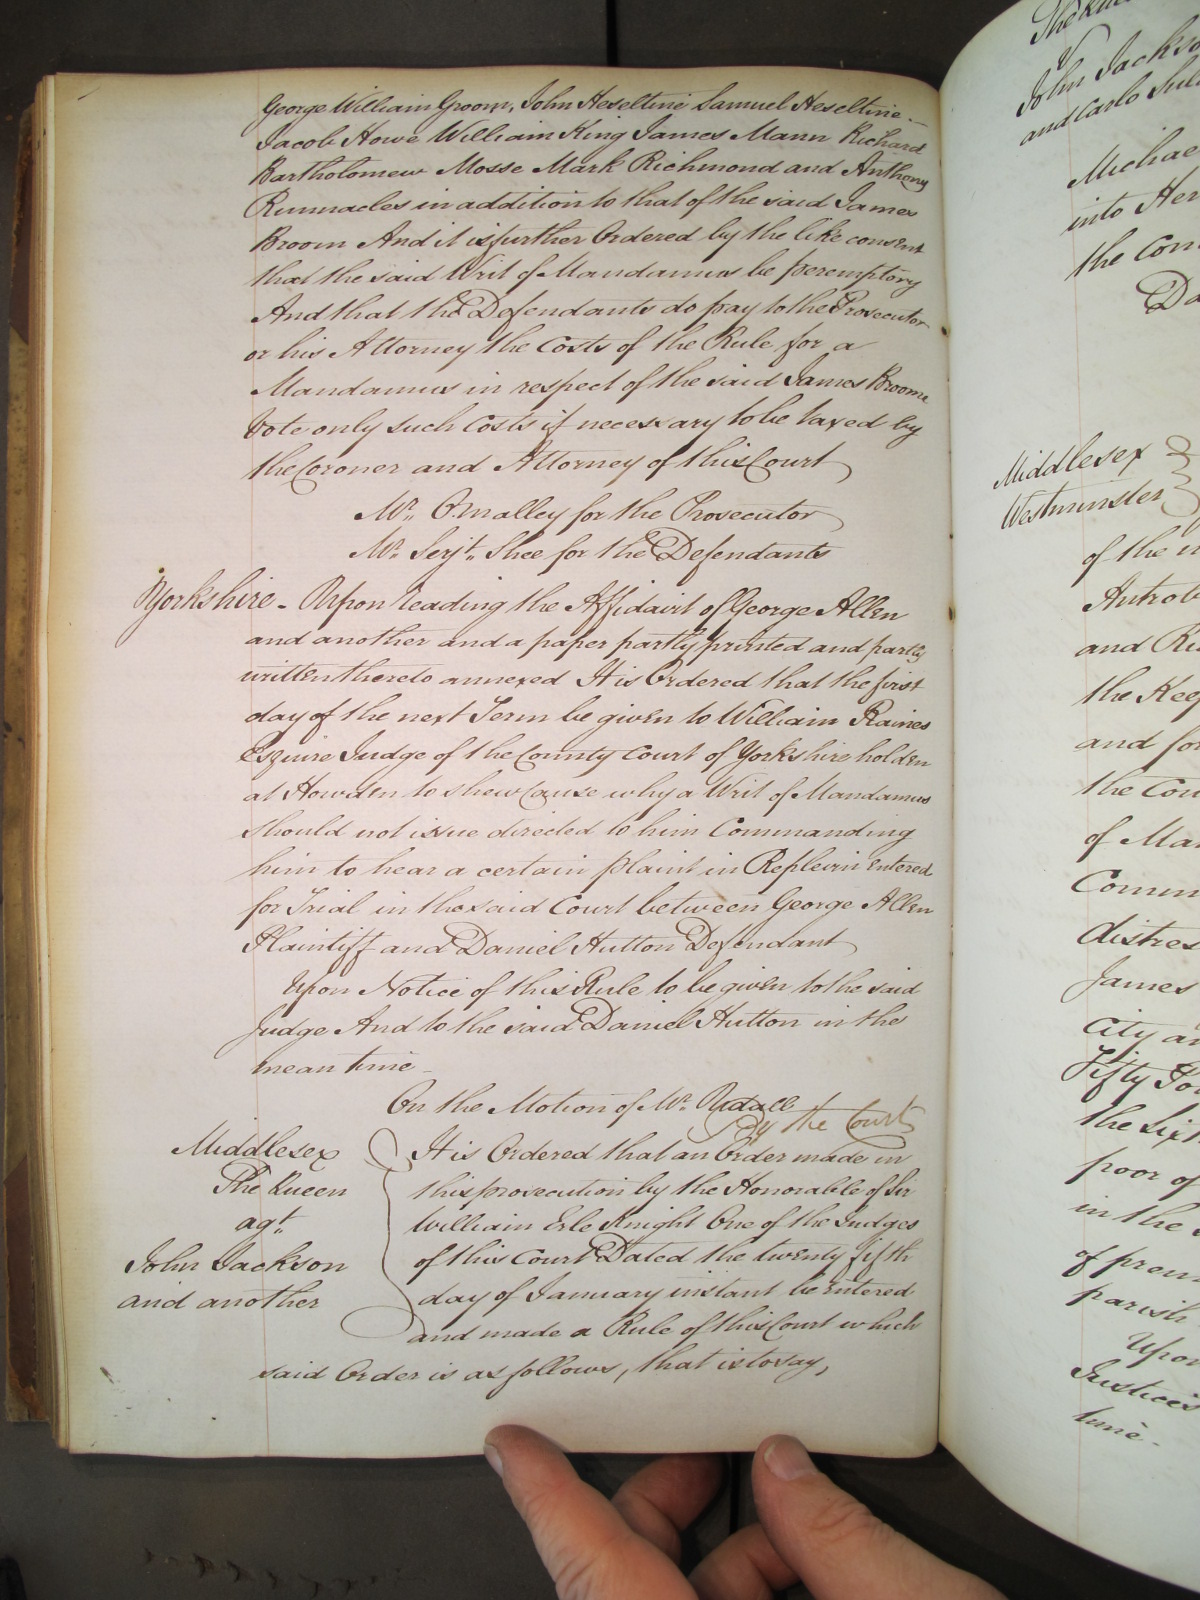 George William Groom, John Heseltine Samuel Heseltine
Jacob Howe William King James Mann Richard
Bartholomew Mosse Mark Richmond and Anthony
Rumacles in addition to that of the said James
Broom And it is further Ordered by the like consent
that the said Writ of Mandamus be peremptory
And that the Defendants do pay to the Prosecutor
or his Attorney the Costs of the Rule for a
Mandamus in respect of the said James Broome
Vote only such Costs if necessary to be taxed by
the Coroner and Attorney of this Court
Mr. O'Malley for the Prosecutor
Mr. Serjt. Shee for the Defendants
Yorkshire - Upon reading the Affidavit of George Allen
and another and a paper partly printed and partly
written thereto annexed It is Ordered that the first
day of the next Term be given to William Raines
Esquire Judge of the County Court of Yorkshire holden
at Howden to shew Cause why a Writ of Mandamus
should not issue directed to him Commanding
him to hear a certain plaint in Replevin entered
for Trial in the said Court between George Allen
Plaintiff and Daniel Hutton Defendant
Upon Notice of this Rule to be given to the said
Judge And to the said Daniel Hutton in the
mean time -
On the Motion of Mr. Udall
By the Court
Middlesex
The Queen
agt.
John Jackson
and another
It is Ordered that an Order made in
this prosecution by the Honorable of Sir
William Erle Knight One of the Judges
of this Court Dated the twenty fifth
day of January instant be entered
and made a Rule of this Court which
said Order is as follows, that is to say,
The
V
John Jackso
and Carlo
Michae
into Her
the Con
Da
Middlesex
Westminster
of the
Antrob
and
the Keep
and for
the Cou
of Ma
Comm
distres
James
City a
Fifty
the Six
poor of
in the
of prem
parish
Upon
Justices
time -